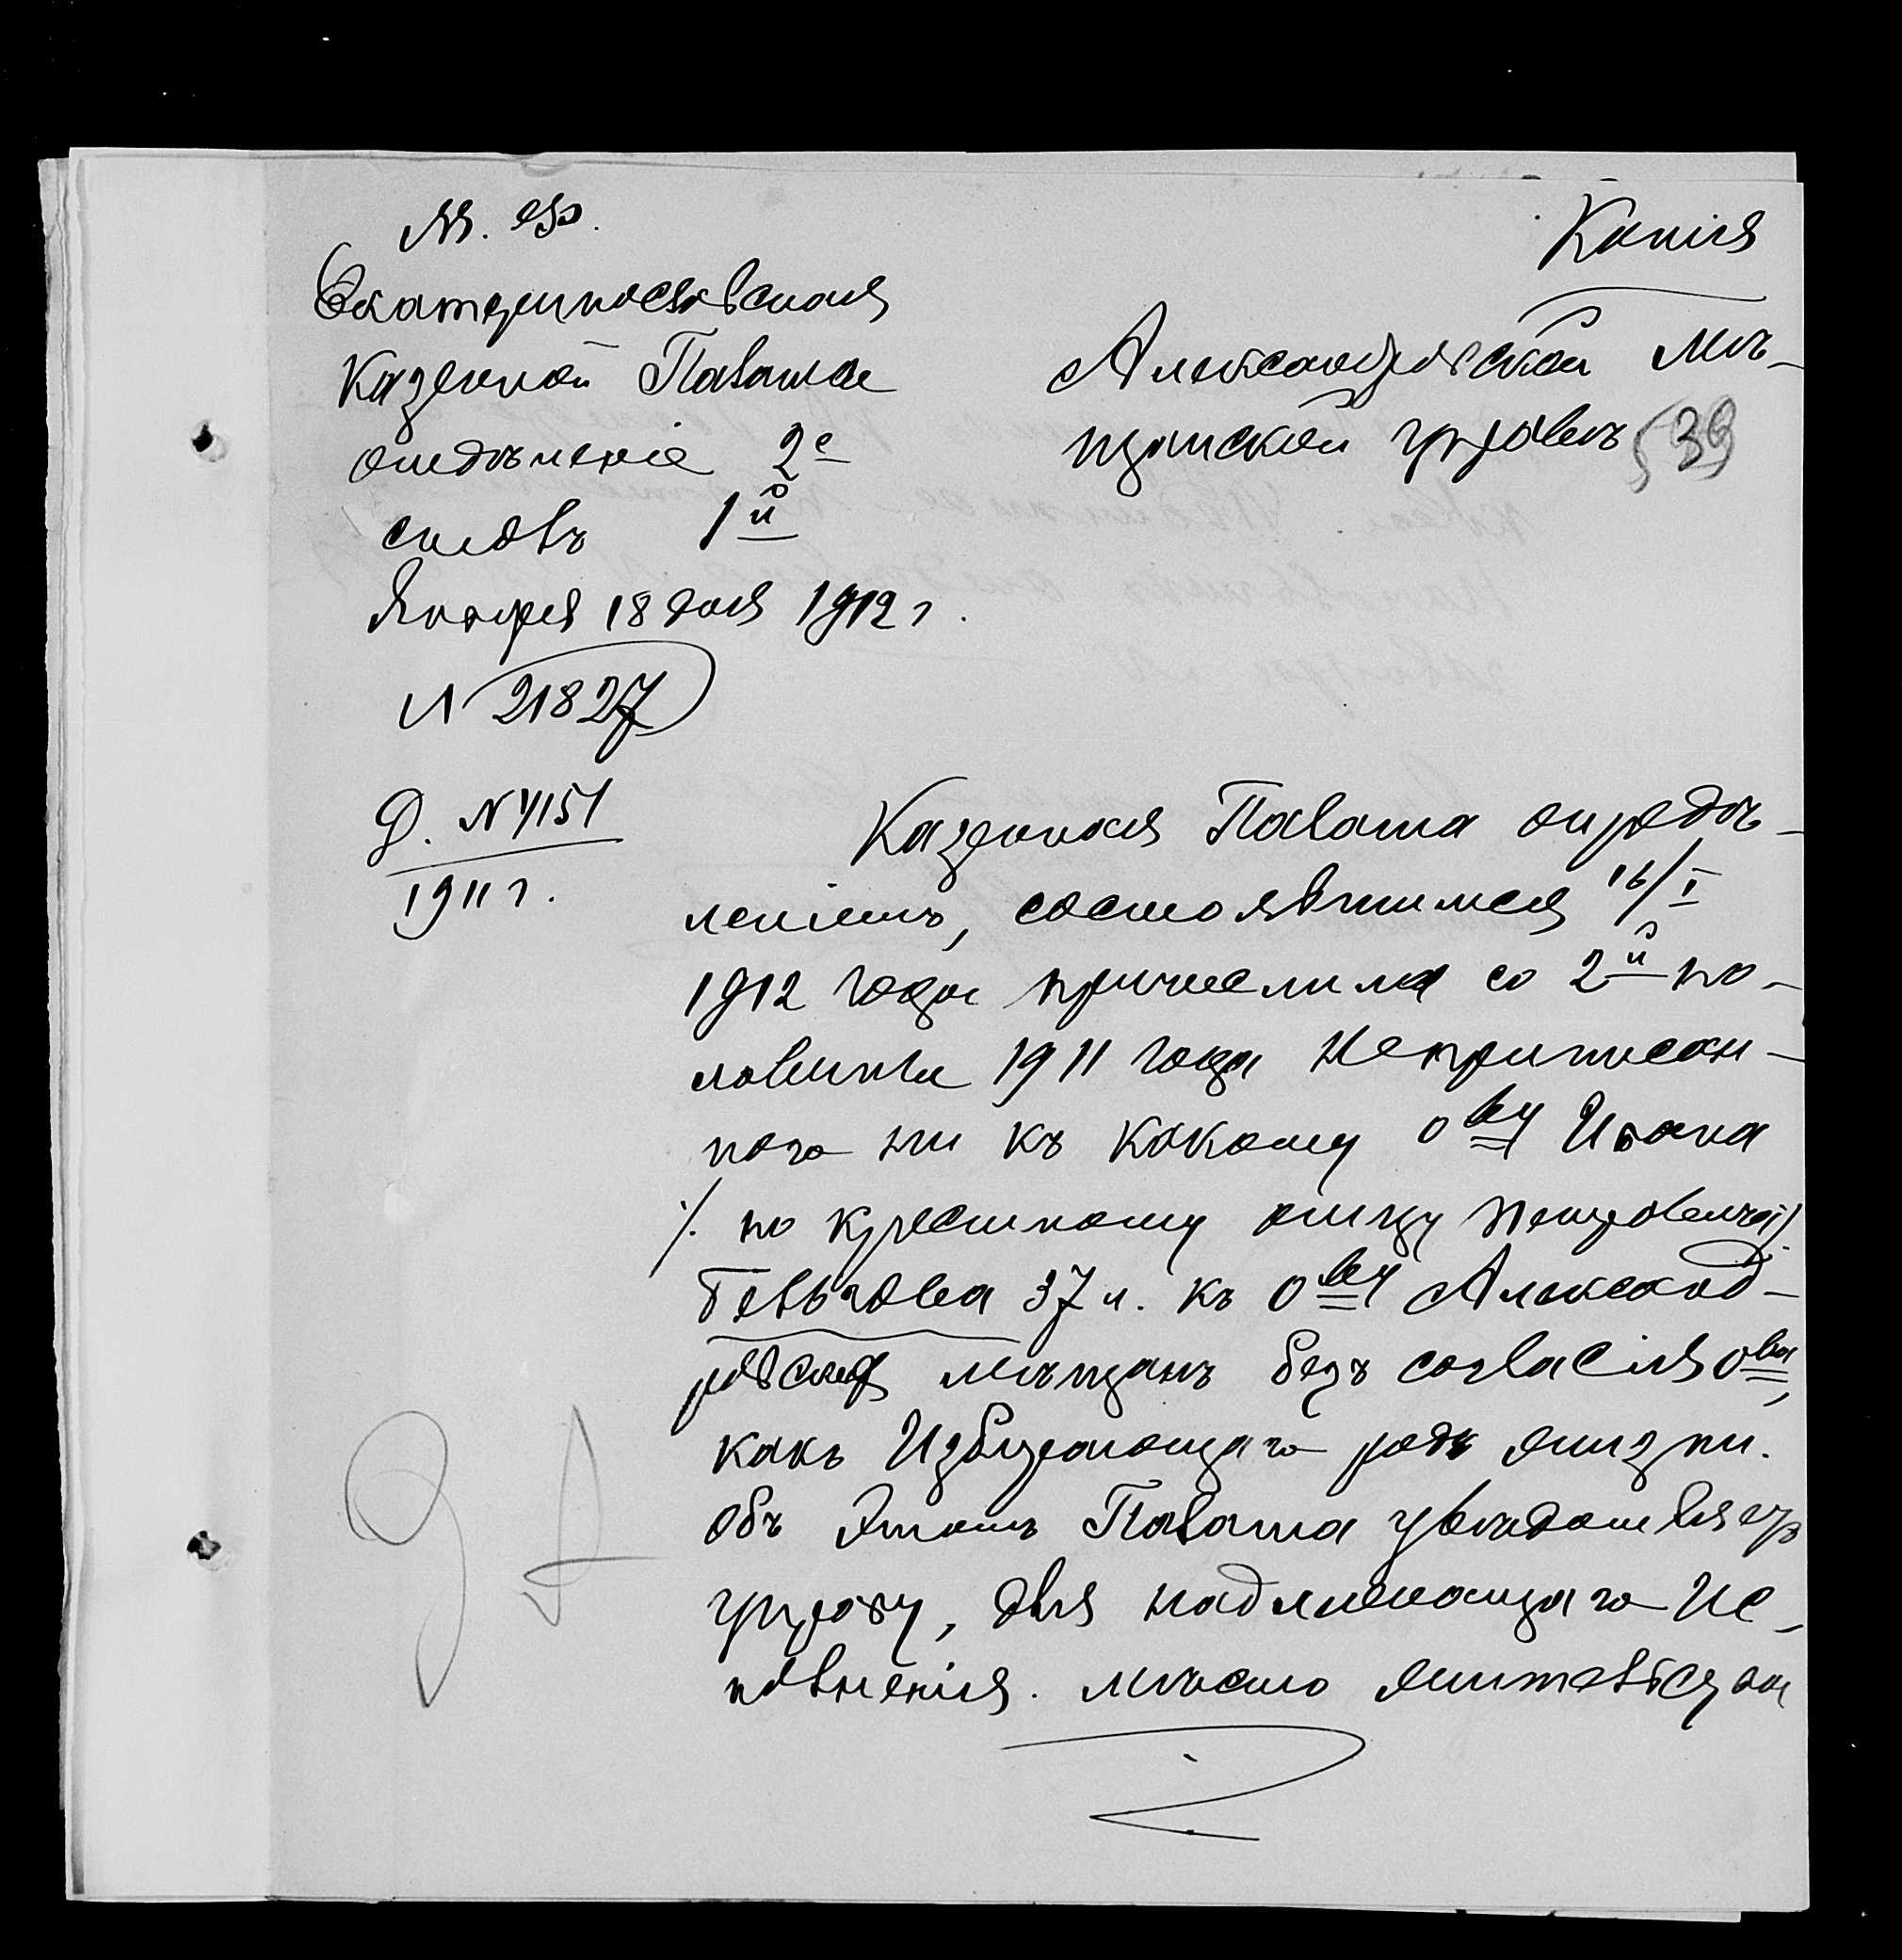 М. Ф.
Копія
Екатеринославская
Казенной Палаты
отдѣленіе 2е
столъ 1й
Января 18 дня 1912 г.
N 21827
Д. N 4151
1911 г.
Александровской Мѣ-
щанской Управѣ
39
Казенная Палата опредѣ-
леніемъ, состоявшимся 16/I
1912 года причислила со 2й по-
ловины 1911 года Неприписан-
наго ни къ какому обву Ивана
/. по крестному отцу Петровича/
37 л. къ обву Александ-
ровскихъ мѣщанъ безъ согласія обва,
какъ Избирающаго родъ жизни.
Объ этомъ Палата увѣдомляетъ
управу, для надлежащаго Ис-
полненія. Мѣсто жительства